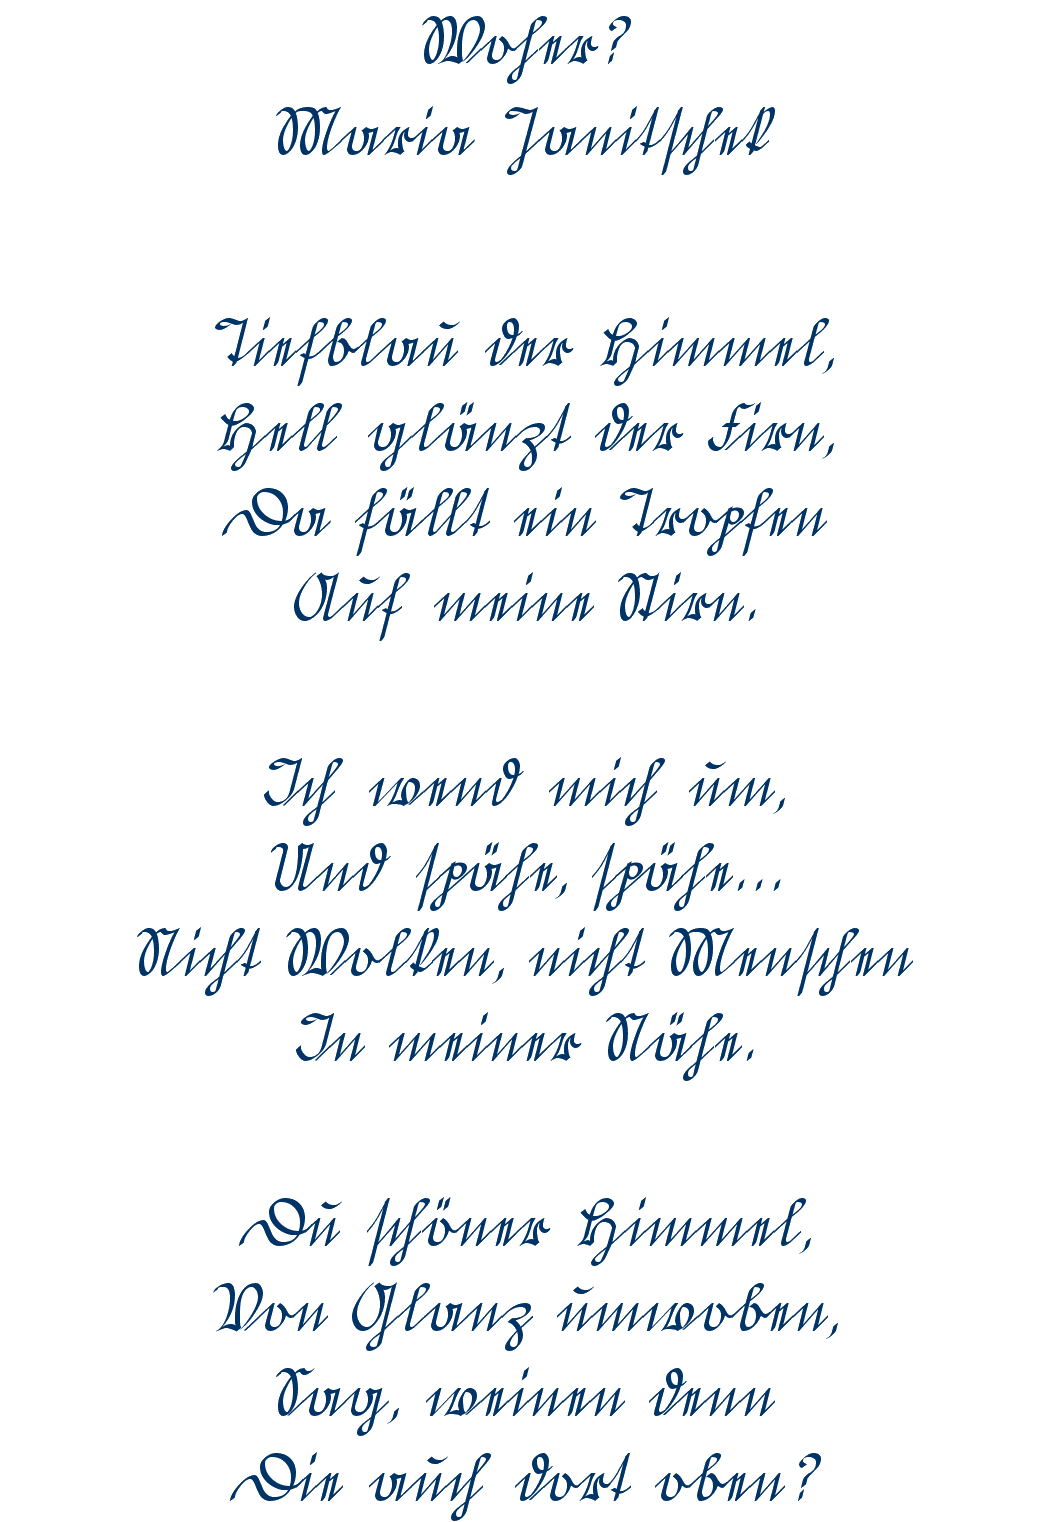 Woher?
Maria Janitschek
Tiefblau der Himmel,
Hell glänzt der Firn,
Da fällt ein Tropfen
Auf meine Stirn.
Ich wend mich um,
Und spähe, spähe...
Nicht Wolken, nicht Menschen
In meiner Nähe.
Du schöner Himmel,
Von Glanz umwoben,
Sag, weinen denn
Die auch dort oben?